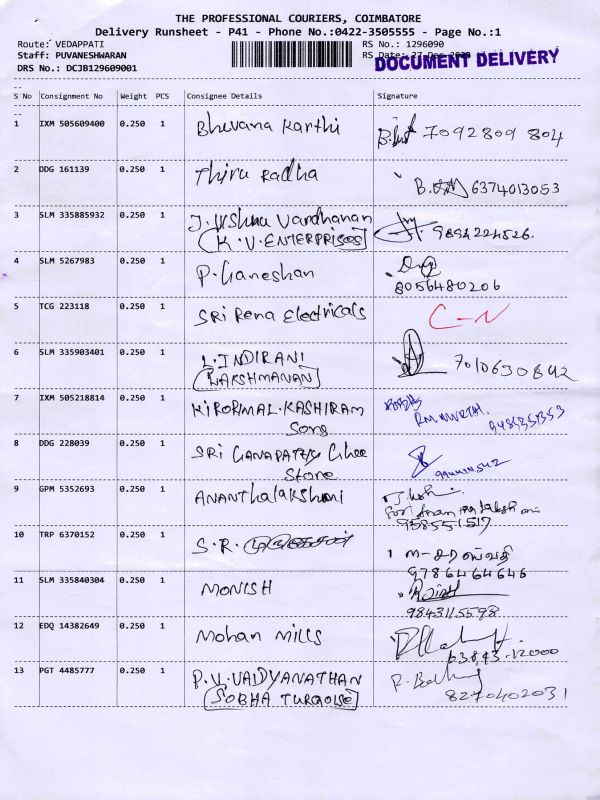 THE PROFESSIONAL COURIERS, COIMBATORE
Delivery Runsheet - P41 - Phone No.:0422-3505555 - Page No.:1
Route: VEDAPPATI RS No.: 1296090
Staff: PUVANESHWARAN RS Date: 27-Dec
DOCUMENT DELIVERY
DRS No.: DCJB129609001
S No Consignment No Weight PCS Consignee Details Signature
1 IXM 505609400 0.250 1 Bhuvana Karthi 7092809 804
2 DDG 161139 0.250 1 Thiru Radha 6374013053
3 SLM 335885932 0.250 1 J. Vishnu Vardhanan 9894224526.
(K.V. ENTERPRISES)
4 SLM 5267983 0.250 1 P. Ganeshan
8056480206
5 TCG 223118 0.250 1 SRI Rena Electricals C-N
6 SLM 335903401 0.250 1 L. INDIRANI 7010630842
(LAKSHMANAN)
7 IXM 505218814 0.250 1 KIRORMAL.KASHIRAM
Sons
8 DDG 228039 0.250 1 SRI GANAPATHY Ghee
Store
9 GPM 5352693 0.250 1 ANANTHALAKSHMI
10 TRP 6370152 0.250 1 S.R. 1 ம-சரஸ்வதி
9786464646
11 SLM 335840304 0.250 1 MONISH
9843115598
12 EDQ 14382649 0.250 1 Mohan Mills
63843-12000
13 PGT 4485777 0.250 1 P.V. VAIDYANATHAN
(SOBHA TURQOISE) 8270402031